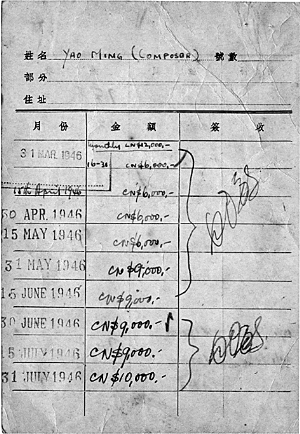 姓名 YAO MING (COMPOSER) 號數
部分
住址
月份 金額 簽收
monthly CN$12,000.-
31 MAR 1946 16-31 CN$6,000.-
15th April 1946 CN$6,000.-
30 APR. 1946 CN$6,000.-
15 MAY 1946 CN$6,000.-
31 MAY 1946 CN$9,000.-
15 JUNE 1946 CN$9,000.-
30 JUNE 1946 CN$9,000.-
15 JULY 1946 CN$9,000.-
31 JULY 1946 CN$10,000.-